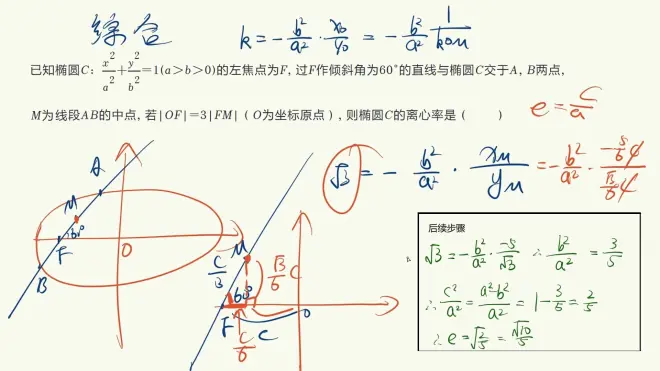 综合
k=-\frac{b^2}{a^2}·\frac{x_0}{y_0}=-\frac{b^2}{a^2}\frac{1}{k_{OM}}
已知椭圆C：\frac{x^2}{a^2}+\frac{y^2}{b^2}=1(a>b>0)的左焦点为F，过F作倾斜角为60°的直线与椭圆C交于A，B两点，
M为线段AB的中点，若|OF|=3|FM|（O为坐标原点），则椭圆C的离心率是（ ）
e=\frac{c}{a}
\sqrt{3}=-\frac{b^2}{a^2}·\frac{x_M}{y_M}=-\frac{b^2}{a^2}·\frac{-\frac{5}{6}c}{\frac{\sqrt{3}}{6}c}
A
M
60°
F
O
B
M
\frac{c}{3}
\frac{\sqrt{3}}{6}c
60°
F
O
\frac{c}{6}
c
后续步骤
\sqrt{3}=-\frac{b^2}{a^2}·\frac{-5}{\sqrt{3}} ∴\frac{b^2}{a^2}=\frac{3}{5}
∴\frac{c^2}{a^2}=\frac{a^2-b^2}{a^2}=1-\frac{3}{5}=\frac{2}{5}
∴e=\sqrt{\frac{2}{5}}=\frac{\sqrt{10}}{5}